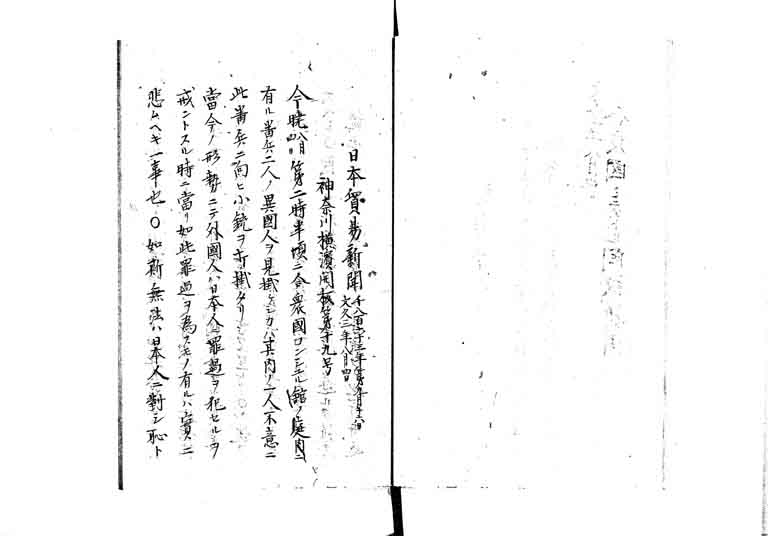 日本貿易新聞 千八百六十三年第九月十六日
文久三年八月四日
神奈川横濱開板第十九号
今暁 第二時半頃ニ合衆國コンシュル舘ノ庭内ニ
有ル番兵二人ノ異國人ヲ見掛ケシカハ其内ノ一人不意ニ
此番兵ニ向ヒ小銃ヲ打掛タリ
當今ノ形勢ニテ外國人ハ日本人ノ罪過ヲ犯セルヲ
戒ントスル時ニ當リ如此罪過ヲ為スモノ有ルハ實ニ
悲ムヘキ一事也 〇 如斯無法ハ日本人ニ對シ恥ト